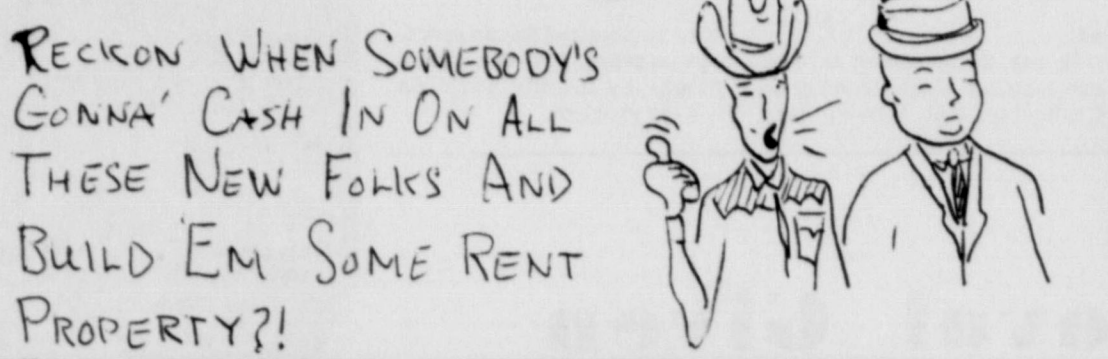 RECKON WHEN SOMEBODY'S
GONNA' CASH IN ON ALL
THESE NEW FOLKS AND
BUILD 'EM SOME RENT
PROPERTY?!